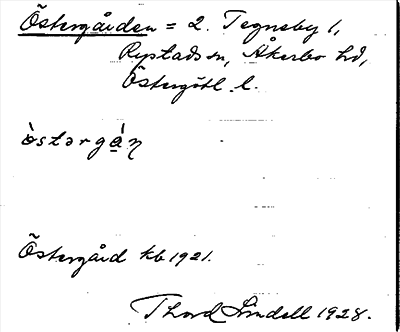 Östergården = 2. Tegneby 1,
Rystads sn, Åkerbo hd,
Östergötl. l.
ò̀stərgá̀n
Östergård kb 1921.
Thord Lindell 1928.